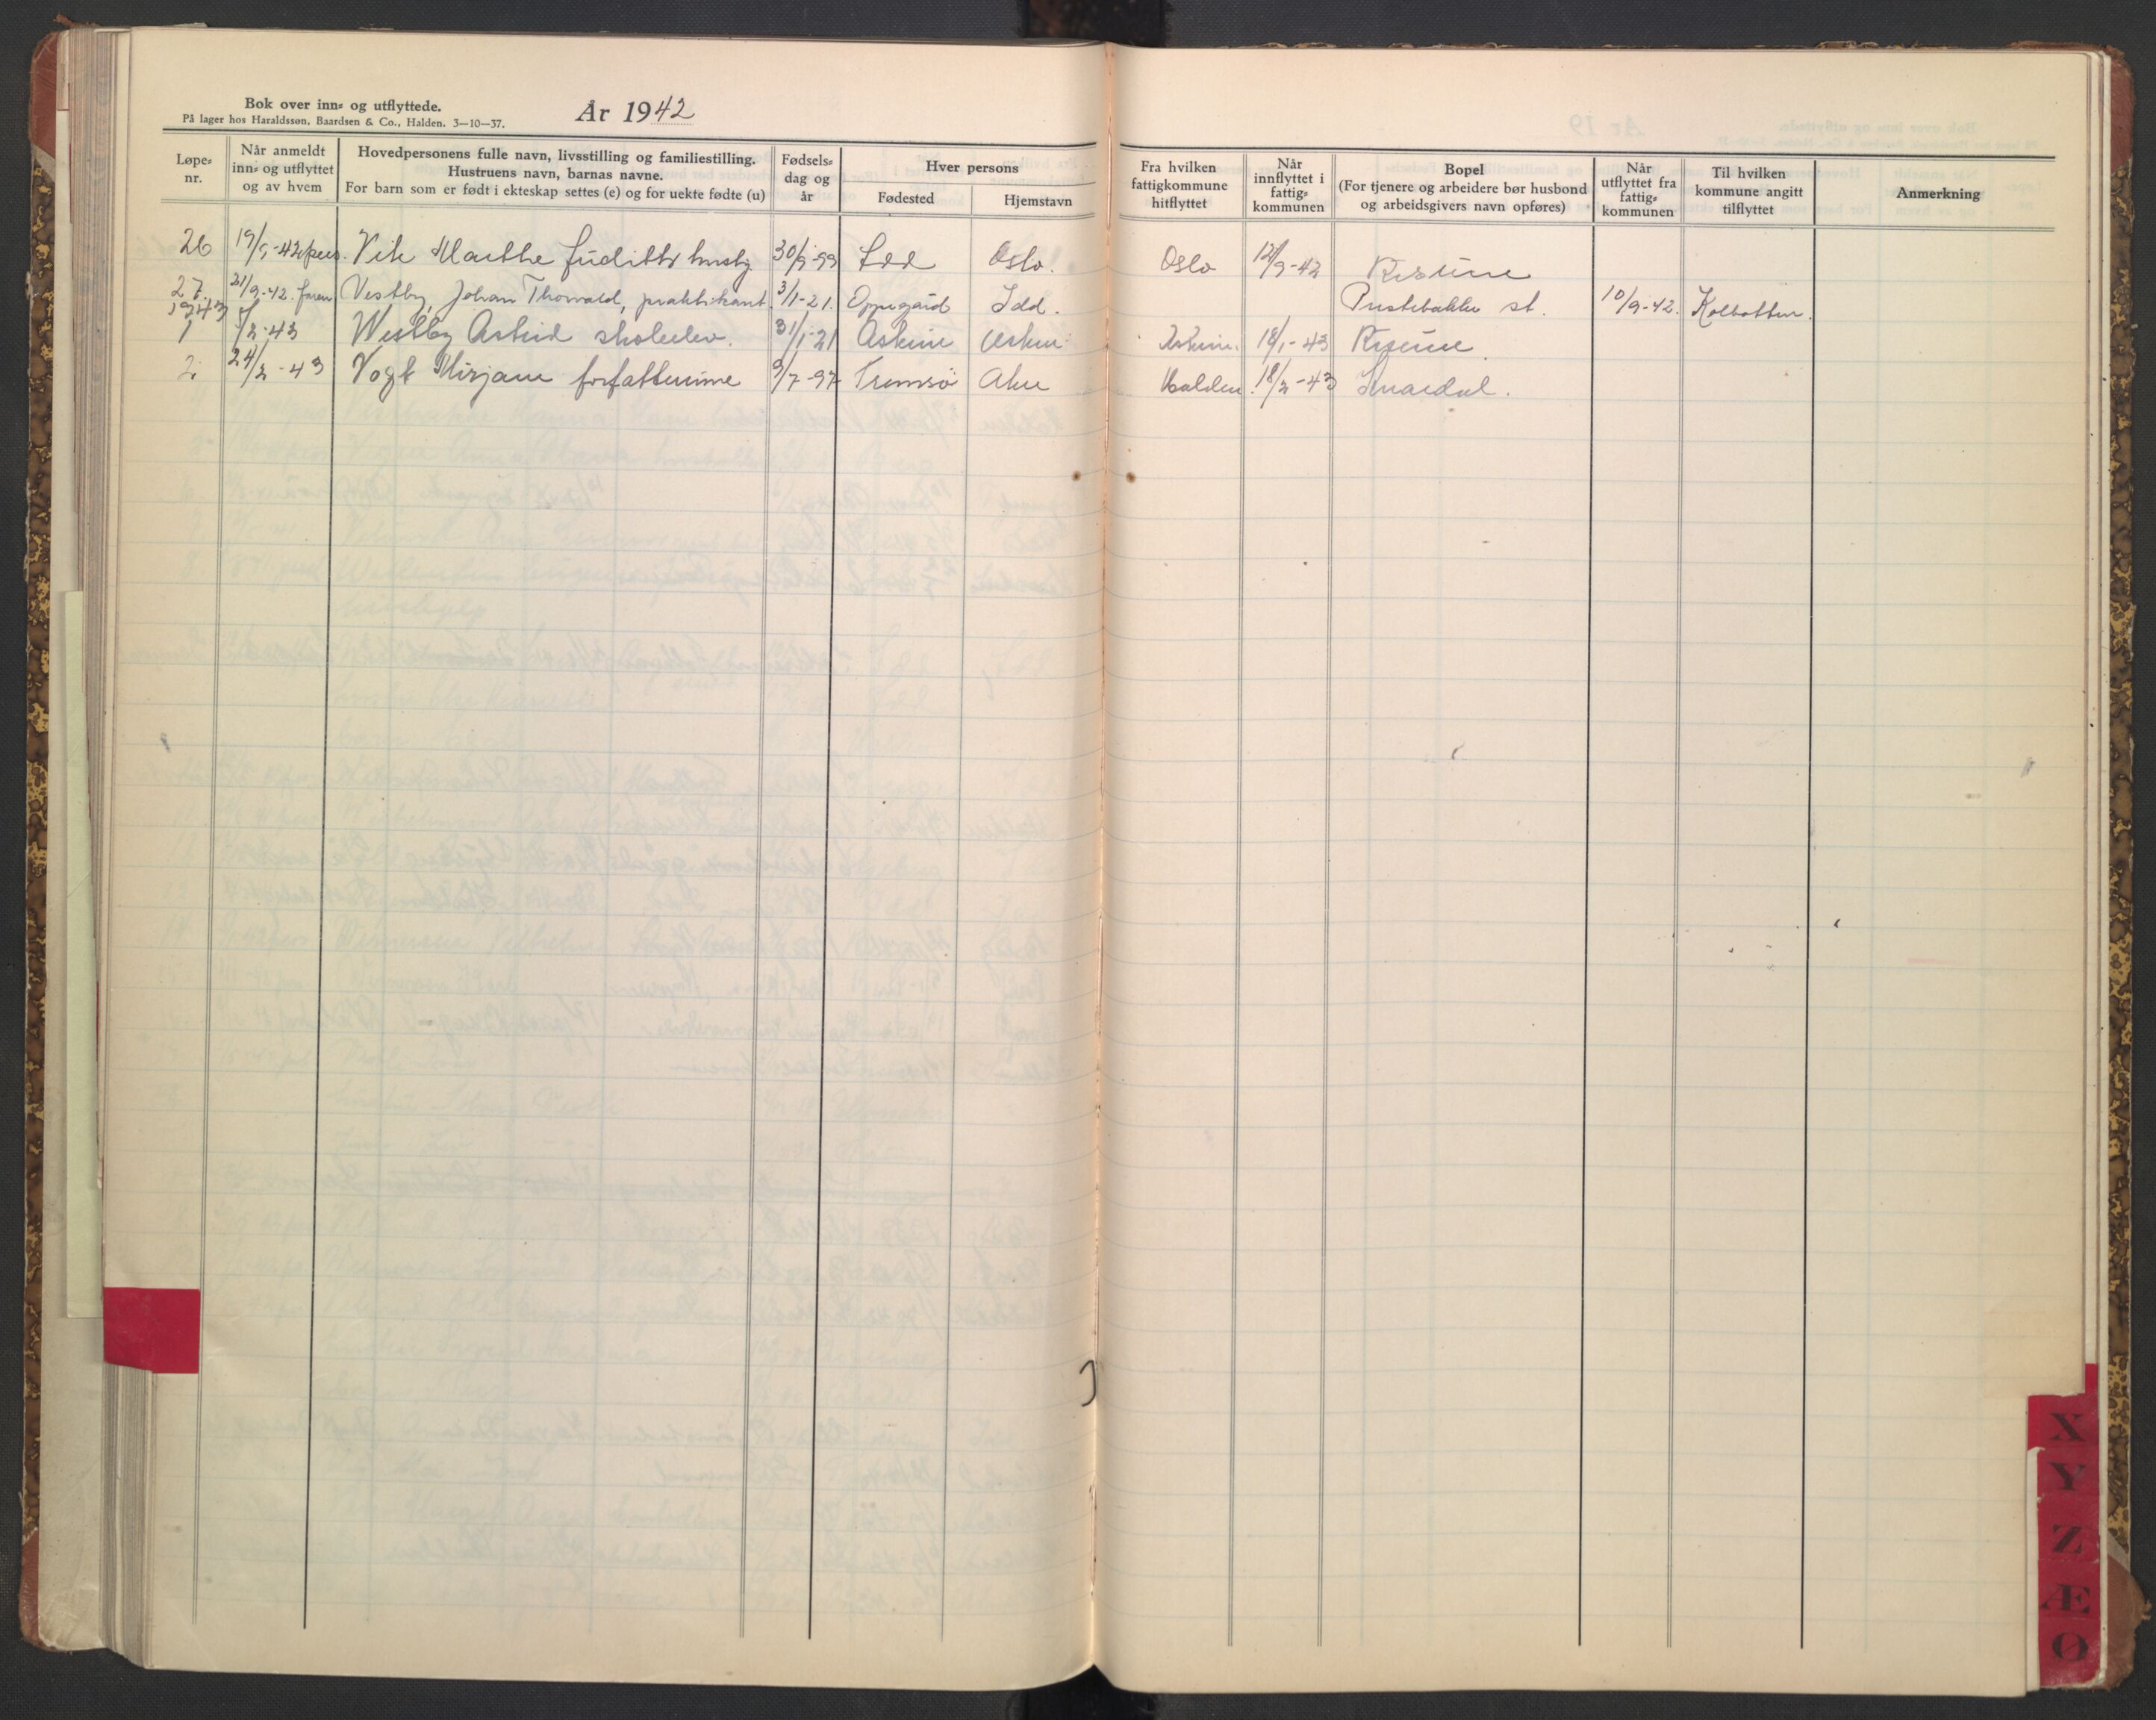 Bok over inn- og utflyttede.
På lager hos Haraldssøn, Baardsen & Co., Halden. 3—10—37.
År 1942
Løpe-nr.
Når anmeldt inn- og utflyttet og av hvem
Hovedpersonens fulle navn, livsstilling og familiestilling.
Hustruens navn, barnas navne.
For barn som er født i ekteskap settes (e) og for uekte fødte (u)
Fødsels-dag og år
Hver persons
Fødested
Hjemstavn
Fra hvilken fattigkommune hitflyttet
Når innflyttet i fattig-kommunen
Bopel
(For tjenere og arbeidere bør husbond og arbeidsgivers navn opføres)
Når utflyttet fra fattig-kommunen
Til hvilken kommune angitt tilflyttet
Anmerkning
26 19/9-42 pers. Vik Marthe Judithe 30/9-99 Idd Oslo. Oslo 12/9-42
27. 21/9-42. faren Vestby, Johan Thorvald, praktikant 3/1-21. Oppegård Idd. Prestebakke st. 10/9-42. Kolbotten.
1943
1 /2-43 Westby Astrid skoleelev. 31/1-21 Askim Askim Askim. 18/1-43
2. 24/2-43 Vogt Mirjam forfatterinne 9/7-97 Tromsø Aker Halden 18/2-43
X
Y
Z
Æ
Ø